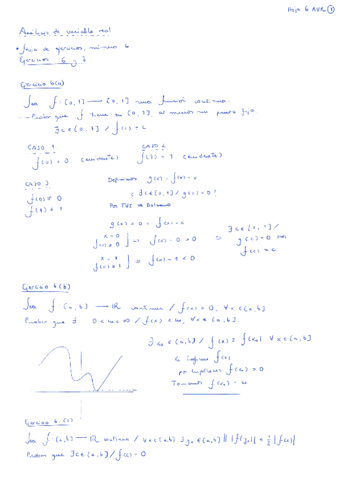 Hoja 6 AVR ①
Análisis de variable real
• Hoja de ejercicios, número 6
Ejercicios 6 y 7
Ejercicio 6(a)
Sea f: [0,1] → [0,1] una función continua.
Probar que f tiene en [0,1], al menos un punto fijo.
∃ c ∈ [0,1] / f(c) = c
CASO 1
f(0) = 0
CASO 2
f(1) = 1
CASO 3
f(0) ≠ 0
f(1) ≠ 1
Definimos g(x) = f(x) - x
¿ ∃ c ∈ [0,1] / g(c) = 0 ?
Por de Bolzano
x = 0
f(0) ≠ 0 } ⇒ f(0) - 0 > 0
x = 1
f(1) ≠ 1 } ⇒ f(1) - 1 < 0
⇒ ∃ c ∈ [0,1] /
g(c) = 0
f(c) = c
Ejercicio 6(b)
Sea f: [a,b] → ℝ continua / f(x) > 0, ∀ x ∈ [a,b]
Probar que ∃ 0 < m < ∞ / f(x) ≥ m, ∀ x ∈ [a,b].
∃ x₀ ∈ [a,b] / f(x) ≥ f(x₀) ∀ x ∈ [a,b]
por hipótesis f(x₀) > 0
Tomamos f(x₀) = m
Ejercicio 6 (c)
Sea f: [a,b] → ℝ continua / ∀ x ∈ [a,b] ∃ y ∈ [a,b] | |f(y)| ≤ ½ |f(x)|
Probar que ∃ c ∈ [a,b] / f(c) = 0